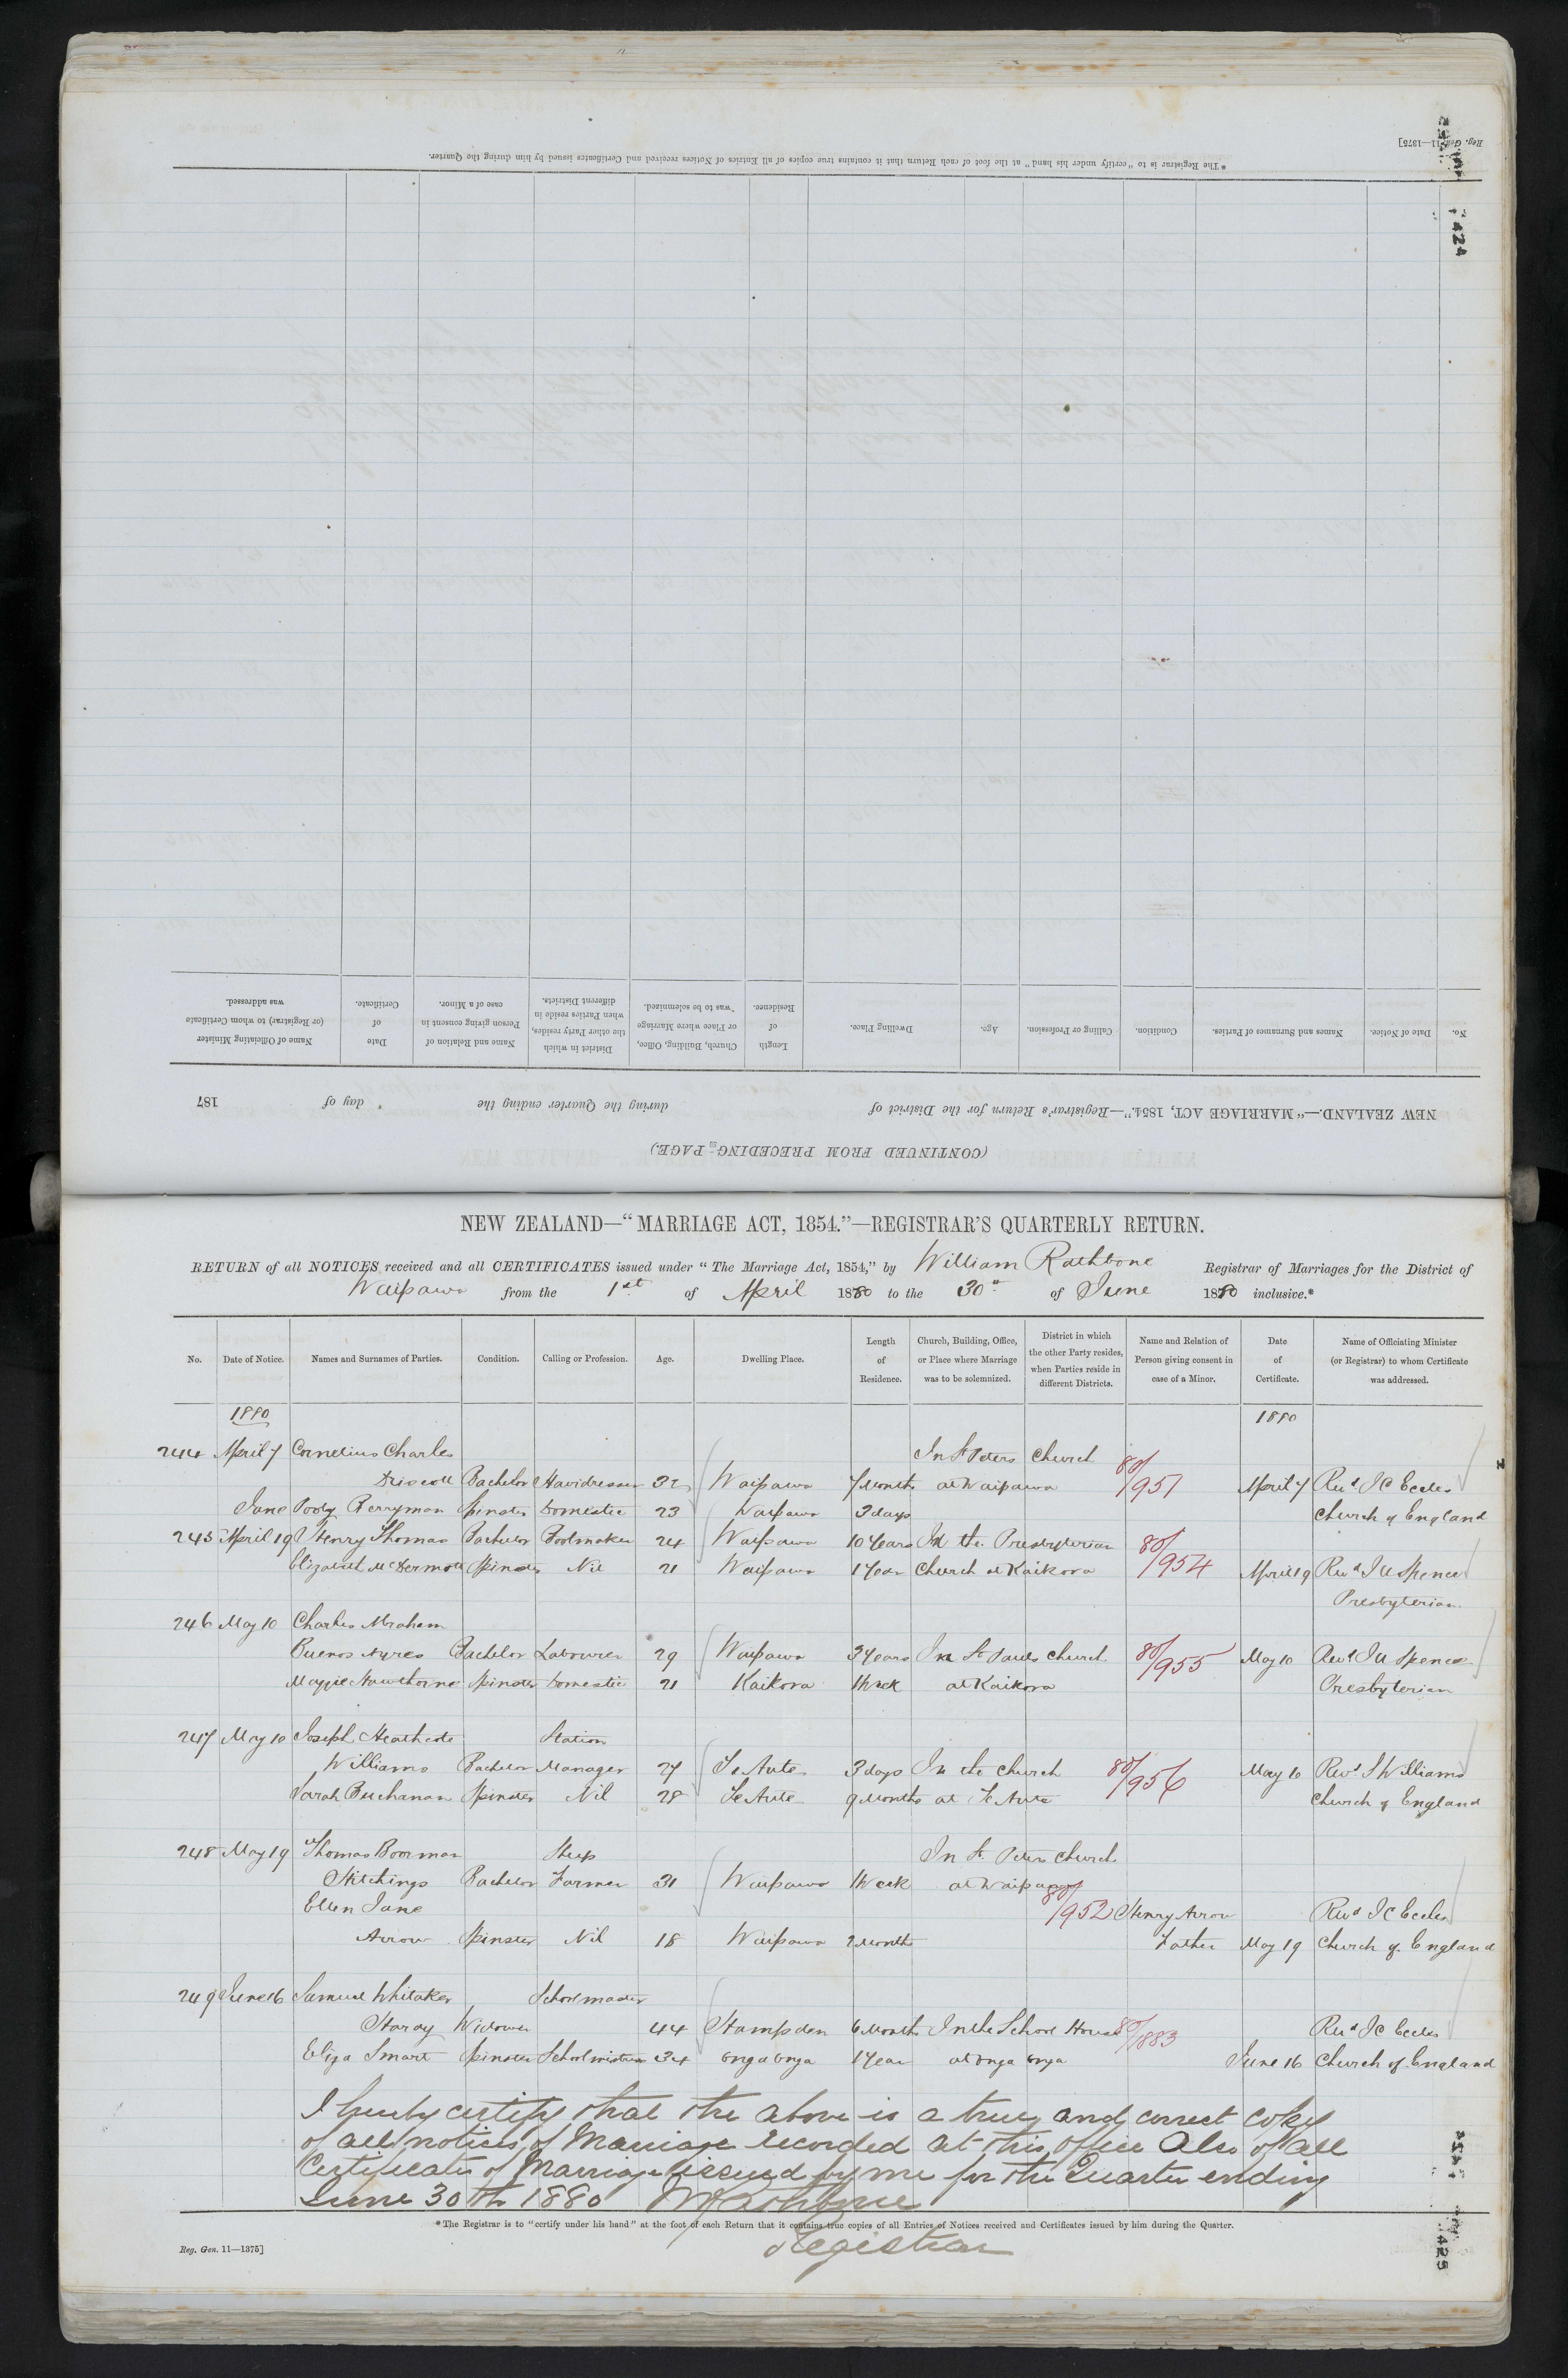 * The Registrar is to "certify under his hand" at the foot of each Return that it contains true copies of all Entries of Notices received and Certificates issued by him during the Quarter.
Reg. Gen. 11—1375]
424
No.
Date of Notice.
Names and Surnames of Parties.
Condition.
Calling or Profession.
Age.
Dwelling Place.
Length of Residence.
Church, Building, Office, or Place where Marriage was to be solemnized.
District in which the other Party resides, when Parties reside in different Districts.
Name and Relation of Person giving consent in case of a Minor.
Date of Certificate.
Name of Officiating Minister (or Registrar) to whom Certificate was addressed.
NEW ZEALAND.—"MARRIAGE ACT, 1854."—Registrar's Return for the District of during the Quarter ending the day of 187
(CONTINUED FROM PRECEDING PAGE.)
NEW ZEALAND—"MARRIAGE ACT, 1854."—REGISTRAR'S QUARTERLY RETURN.
RETURN of all NOTICES received and all CERTIFICATES issued under "The Marriage Act, 1854," by William Rathbone Registrar of Marriages for the District of
Waipawa from the 1st of April 1880 to the 30th of June 1880 inclusive.*
No.
Date of Notice.
Names and Surnames of Parties.
Condition.
Calling or Profession.
Age.
Dwelling Place.
Length of Residence.
Church, Building, Office, or Place where Marriage was to be solemnized.
District in which the other Party resides, when Parties reside in different Districts.
Name and Relation of Person giving consent in case of a Minor.
Date of Certificate.
Name of Officiating Minister (or Registrar) to whom Certificate was addressed.
1880 1880
244 April 7 Cornelius Charles In St Peters Church
Driscoll Bachelor Hairdresser 32 Waipawa 7 Months at Waipawa 80/951 April 7 Revd J C Eccles
Jane Berryman Spinster Domestic 23 Waipawa 3 days Church of England
245 April 19 Henry Thomas Bachelor Bootmaker 24 Waipawa 10 Years In the Presbyterian 80/954
Elizabeth McDermott Spinster Nil 21 Waipawa 1 Year Church at Kaikora April 19 Revd J U Spence
Presbyterian
246 May 10 Charles Abraham
Buenos Ayres Bachelor Labourer 29 Waipawa 3 Years In St Pauls Church 80/955 May 10 Revd J U Spence
Maggie Hawthorne Spinster Domestic 21 Kaikora 1 Week at Kaikora Presbyterian
247 May 10 Joseph Heathcote Station
Williams Bachelor Manager 27 Te Aute 3 days In the Church 80/956 May 10 Revd S Williams
Sarah Buchanan Spinster Nil 28 Te Aute 9 Months at Te Aute Church of England
248 May 19 Thomas Boorman Sheep In St. Peters Church
Stitchings Bachelor Farmer 31 Waipawa 1 Week at Waipawa
Ellen Jane 80/952 Henry Arrow Revd J C Eccles
Arrow Spinster Nil 18 Waipawa 2 Months Father May 19 Church of England
249 June 16 Samuel Whitaker Schoolmaster
Hardy Widower 44 Hampden 6 Months In the School House 80/1883 Revd J C Eccles
Eliza Smart Spinster Schoolmistress 34 Onga Onga 1 Year at Onga Onga June 16 Church of England
I hereby certify that the above is a true and correct copy
of all notices of Marriage recorded at this Office Also of all
Certificates of Marriage issued by me for the Quarter ending
June 30th 1880 W Rathbone
* The Registrar is to "certify under his hand" at the foot of each Return that it contains true copies of all Entries of Notices received and Certificates issued by him during the Quarter.
Registrar
Reg. Gen. 11—1375]
425